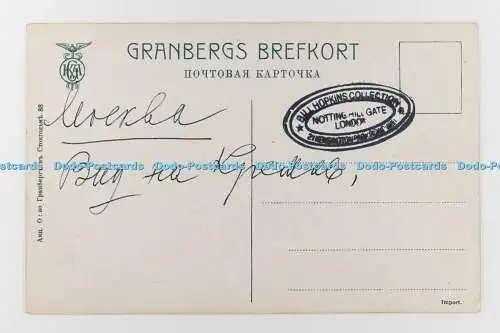 GRANBERGS BREFKORT
ПОЧТОВАЯ КАРТОЧКА
Москва
Вид на Кремль,
★ BILL HOPKINS COLLECTION ★
NOTTING HILL GATE
LONDON
Dodo-Postcards Dodo-Postcards Dodo-Postcards Dodo-Postcards Dodo-Postcards Dodo-Postcards
Import.